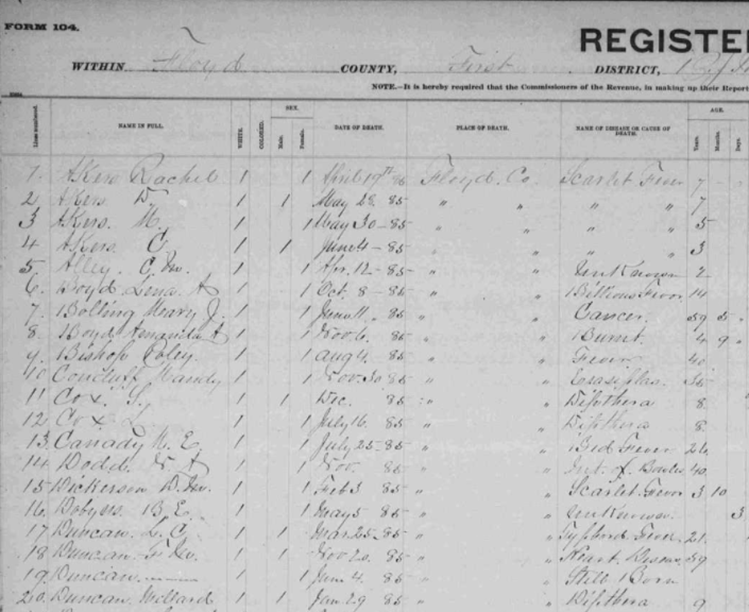 FORM 104.
REGISTE
WITHIN Floyd COUNTY, First DISTRICT,
NOTE.—It is hereby required that the Commissioners of the Revenue, in making up their Report
Lines numbered. NAME IN FULL. WHITE. COLORED. SEX. Male. Female. DATE OF DEATH. PLACE OF DEATH. NAME OF DISEASE OR CAUSE OF DEATH. AGE. Years. Months. Days.
1 Akers Rachel 1 1 April 19th Floyd Co. Scarlet Fever 7
2 Akers D. 1 1 May 28 85 " " " " 7
3 Akers. M. 1 1 May 30 - 85 " " " " 5
4 Akers. C. 1 1 June 4 - 85 " " " " 3
5 Alley. C. 1 1 Apr. 12 - 85 " " Unknown 2
6. Boyd Lena A 1 1 Oct. 8 - 85 " " Billious Fever 14
7. Bolling Mary J. 1 1 June 11. 85 " " Cancer. 59 5
8. Boyd Amanda A 1 1 Nov 6. 85 " " Burnt. 4 9
9. Bishop 1 1 Aug 4. 85 " " Fever 40
10 Conduff Mandy 1 1 Nov. 30 85 " "
11 Cox. S. 1 1 Dec. 85 " " Dipthera 8
12 Cox L 1 1 July 16. 85 " " Dipthera 8
13. Canady M. E. 1 1 July 25 - 85 " " Bed Fever 26
14. Dodd. 1 1 Nov. 85 " " of Bowles 40
15 Dickerson D. 1 1 Feb 3 85 " " Scarlet Fever 3 10
16. Dobyns B. E. 1 1 May 5 85 " " Unknown 3
17 Duncan. L. C. 1 1 Mar. 25 - 85 " " Typhord Fever 21
18 Duncan. 1 1 Nov. 20. 85 " " Heart 59
19. Duncan. 1 1 Jan 4. 85 " " Still Born
20. Duncan Willard 1 1 Jan 29 85 " " Dipthera 9